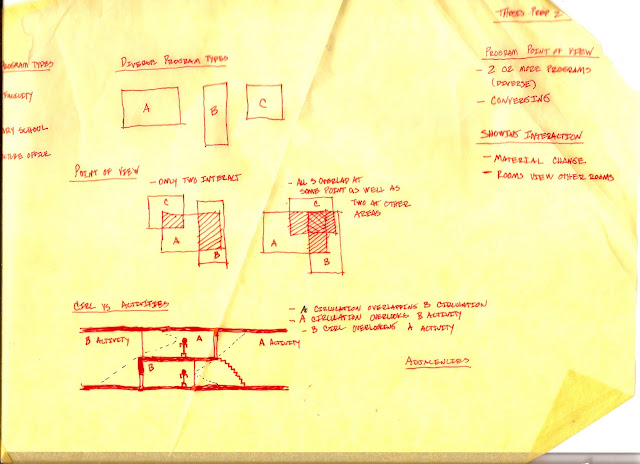 THESIS PREP 2
PROGRAM TYPES
FACILITY
ARY SCHOOL
OFFICE
DIVERSE PROGRAM TYPES
A
B
C
PROGRAM POINT OF VIEW
- 2 OR MORE PROGRAMS
(DIVERSE)
- CONVERGING
SHOWING INTERACTION
- MATERIAL CHANGE
- ROOMS VIEW OTHER ROOMS
POINT OF VIEW
- ONLY TWO INTERACT
C
A
B
- ALL 3 OVERLAP AT
SOME POINT AS WELL AS
TWO AT OTHER
AREAS
C
A
B
CIRL VS ACTIVITIES
- A CIRCULATION OVERLAPPING B CIRCULATION
- A CIRCULATION OVERLOOKS B ACTIVITY
- B CIRL OVERLOOKING A ACTIVITY
B ACTIVITY
A
A ACTIVITY
B
ADJACENCIES